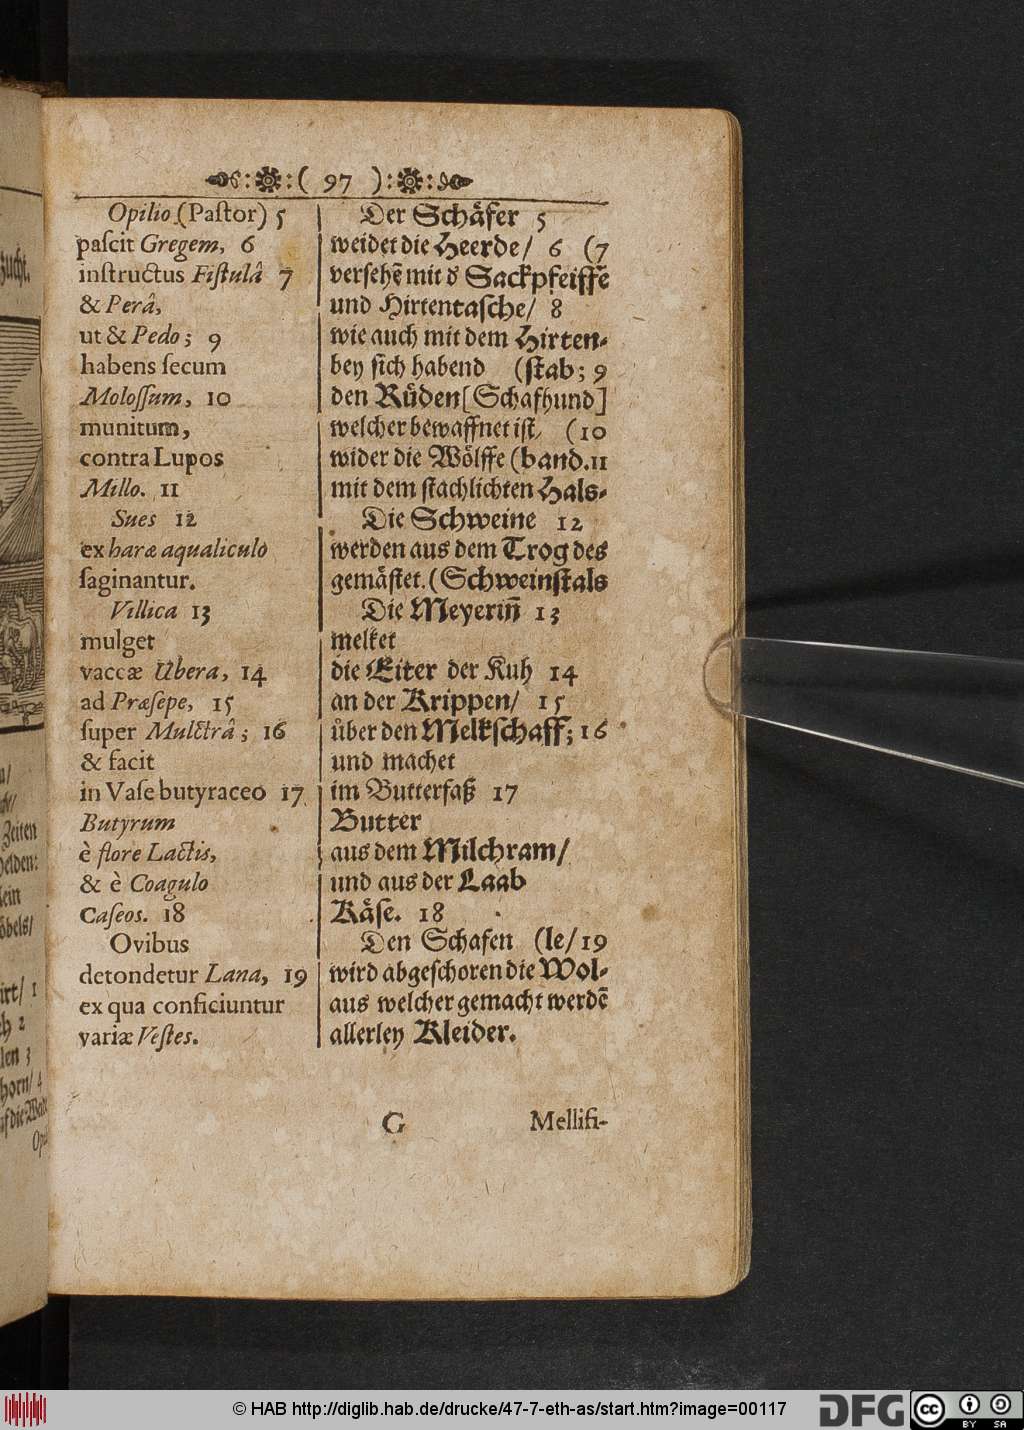 ( 97 )
Opilio (Paſtor) 5
paſcit Gregem, 6
inſtructus Fiſtulâ 7
& Perâ,
ut & Pedo; 9
habens ſecum
Moloſſum, 10
munitum,
contra Lupos
Millo. 11
Sues 12
ex haræ aqualiculo
ſaginantur.
Villica 13
mulget
vaccæ Ubera, 14
ad Præſepe, 15
ſuper Mulctrâ; 16
& facit
in Vaſe butyraceo 17
Butyrum
è flore Lactis,
& è Coagulo
Caſeos. 18
Ovibus
detondetur Lana, 19
ex qua conficiuntur
variæ Veſtes.
Der Schäfer 5
weidet die Heerde/ 6 (7
verſehẽ mit d' Sackpfeiffe
und Hirtentaſche/ 8
wie auch mit dem Hirten-
bey ſich habend (ſtab; 9
den Rüden [Schafhund]
welcher bewaffnet iſt/ (10
wider die Wölffe (band. 11
mit dem ſtachlichten Hals-
Die Schweine 12
werden aus dem Trog des
gemäſtet. (Schweinſtals
Die Meyerin̄ 13
melket
die Eiter der Kuh 14
an der Krippen/ 15
über den Melkſchaff; 16
und machet
im Butterfaß 17
Butter
aus dem Milchram/
und aus der Laab
Käſe. 18
Den Schafen (le/ 19
wird abgeſchoren die Wol-
aus welcher gemacht werdẽ
allerley Kleider.
G
Mellifi-
© HAB http://diglib.hab.de/drucke/47-7-eth-as/start.htm?image=00117
DFG
cc BY SA